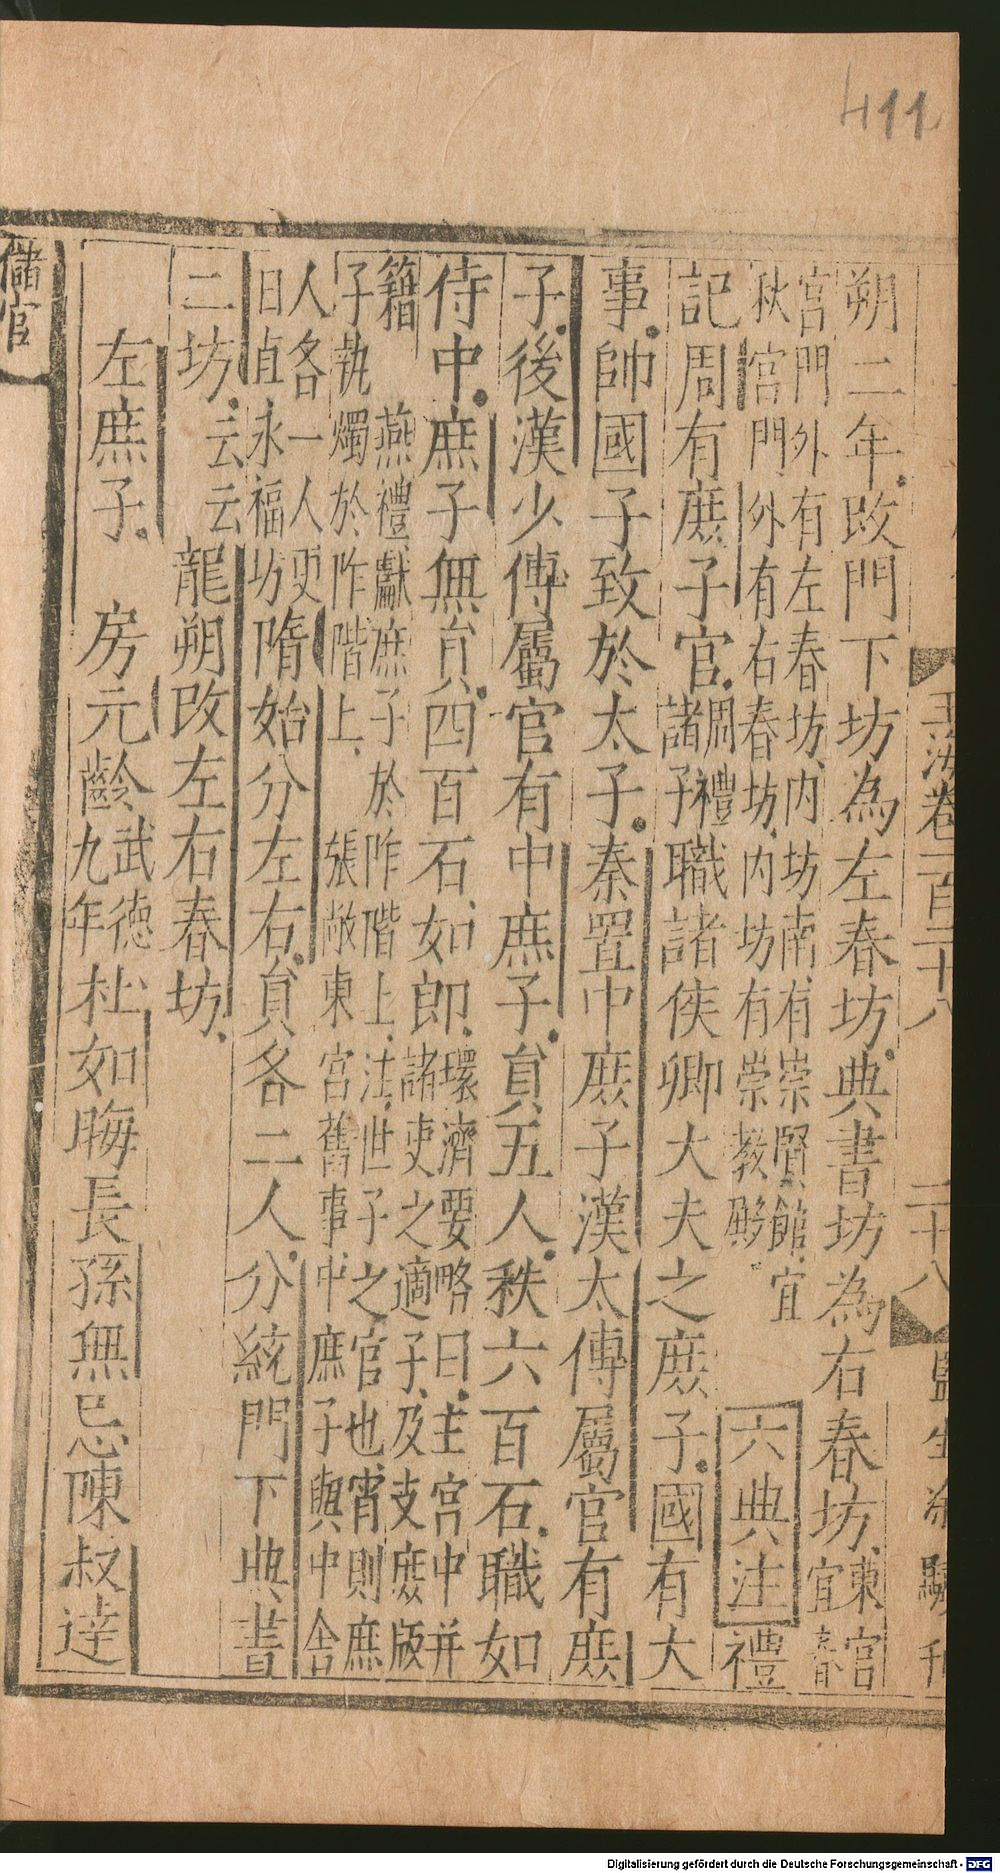 411
玉海卷一百二十八
二十八
監生
刊
朔二年改門下坊為左春坊典書坊為右春坊東宮
宜春
宮門外有左春坊內坊南有崇賢館宜
秋宮門外有右春坊內坊有崇教殿
六典注
禮
記周有庶子官周禮
諸子職諸侯卿大夫之庶子國有大
事帥國子致於太子秦置中庶子漢太傅屬官有庶
子後漢少傅屬官有中庶子員五人秩六百石職如
侍中庶子無員四百石如郎環濟要略曰主宮中并
諸吏之適子及支庶版
籍 燕禮獻庶子於阼階上注世子之官也宵則庶
子執燭於阼階上 張敞東宮舊事中庶子與中舍
人各一人更
日直永福坊隋始分左右員各二人分統門下典書
二坊云云龍朔改左右春坊
左庶子 房元齡武德
九年杜如晦長孫無忌陳叔達
儲官
Digitalisierung gefördert durch die Deutsche Forschungsgemeinschaft - DFG